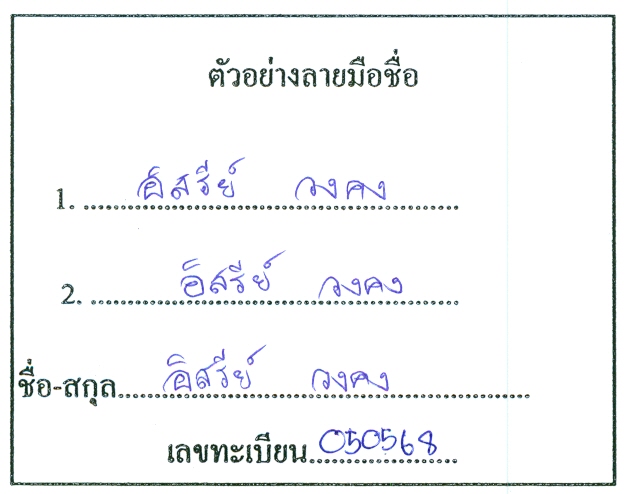 ตัวอย่างลายมือชื่อ
1. อิสรีย์ วงคง
2. อิสรีย์ วงคง
ชื่อ-สกุล อิสรีย์ วงคง
เลขทะเบียน 050568